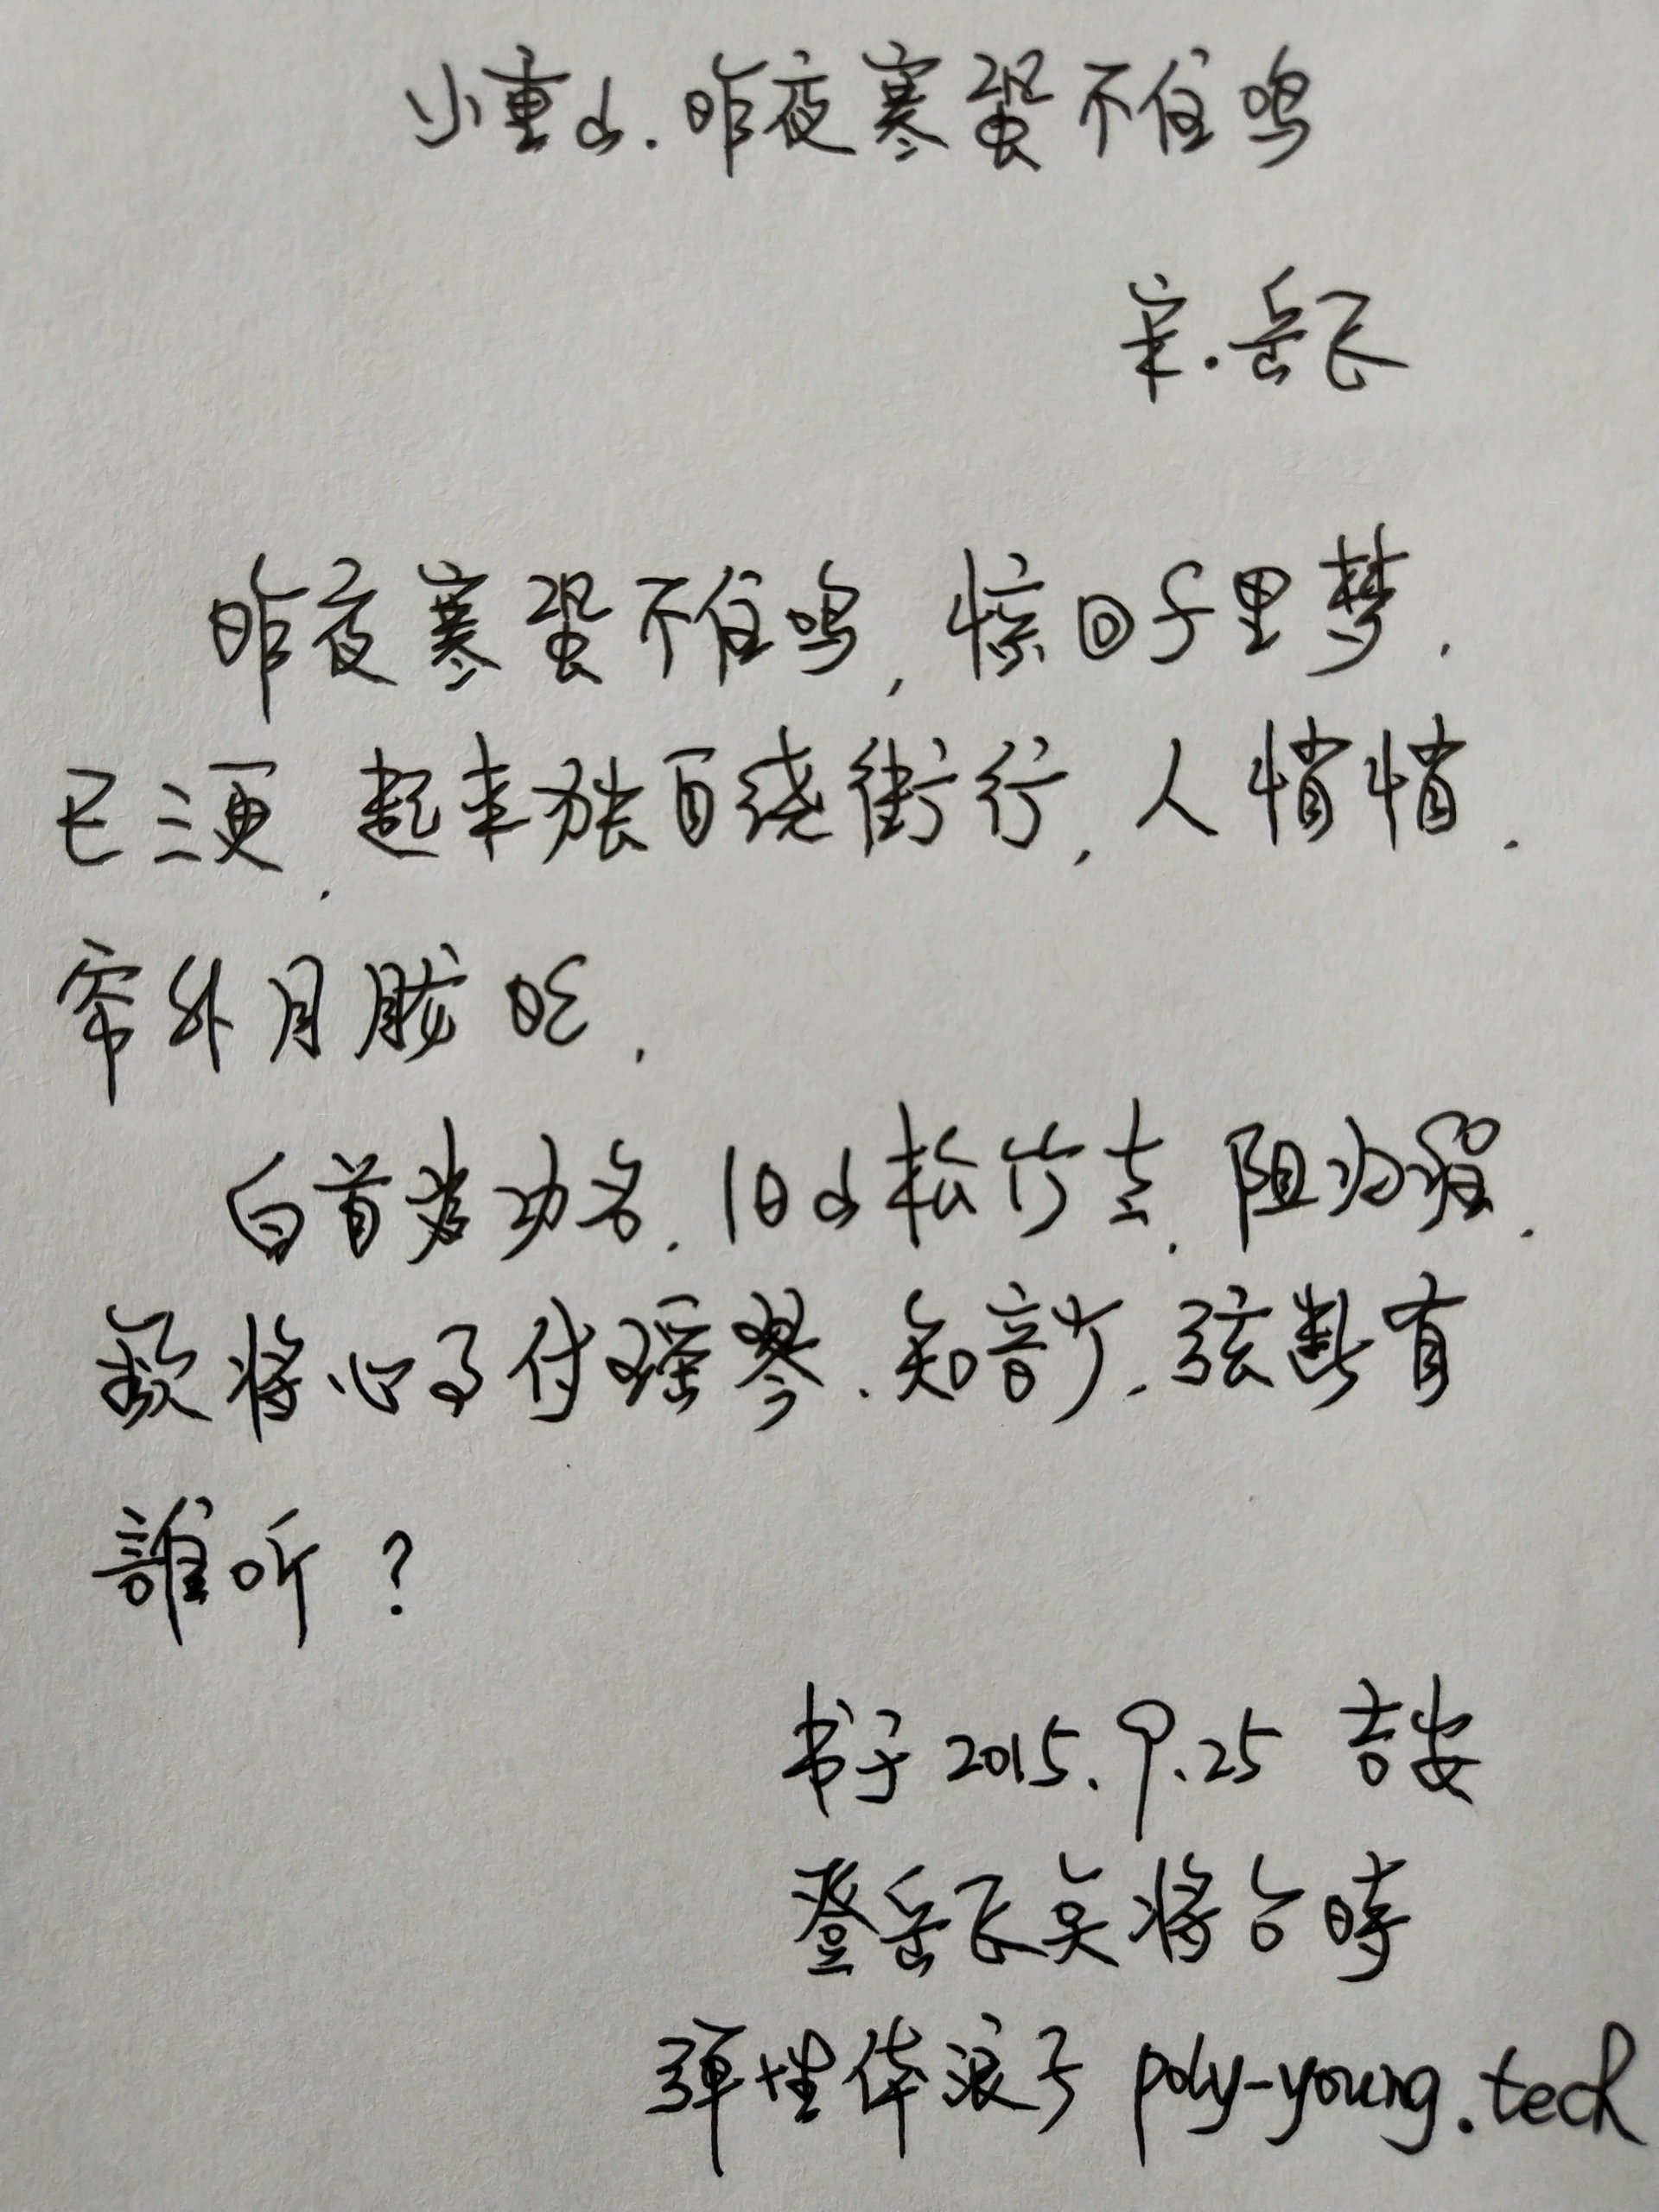 小重山.昨夜寒蛩不住鸣
宋.岳飞
昨夜寒蛩不住鸣,惊回千里梦.
已三更.起来独自绕街行,人悄悄.
帘外月胧明.
白首为功名.旧山松竹老.阻归程.
欲将心事付瑶琴.知音少.弦断有
誰听?
书于2015.9.25 吉安
登岳飞点将台時
弹性体浪子 poly-young.tech